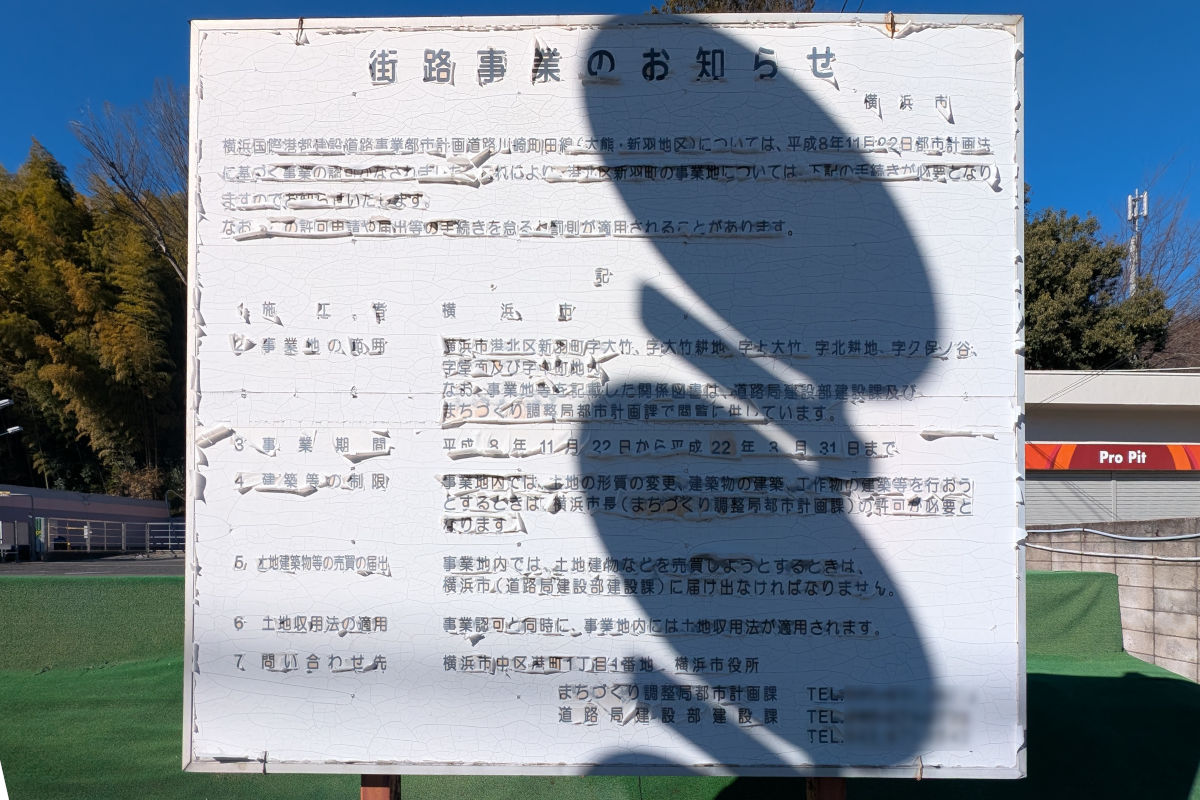 街路事業のお知らせ
横浜市
横浜国際港都建設道路事業都市計画道路川崎町田線(大熊・新羽地区)については、平成8年11月22日都市計画法
に基づく事業の認可がなされました。これにより、港北区新羽町の事業地については、下記の手続きが必要となり
ますのでお知らせいたします。
なお、この許可申請や届出等の手続きを怠ると罰則が適用されることがあります。
記
1. 施工者 横浜市
2. 事業地の範囲 横浜市港北区新羽町字大竹、字大竹耕地、字上大竹、字北耕地、字久保ノ谷、
及び字 地内
なお、事業地等を記載した関係図書は、道路局建設部建設課及び
まちづくり調整局都市計画課で閲覧に供しています。
3. 事業期間 平成8年11月22日から平成22年3月31日まで
4. 建築等の制限 事業地内では、土地の形質の変更、建築物の建築、工作物の建築等を行おう
とするときは、横浜市長(まちづくり調整局都市計画課)の許可が必要と
なります
5. 土地建築物等の売買の届出 事業地内では、土地建物などを売買しようとするときは、
横浜市(道路局建設部建設課)に届け出なければなりません。
6 土地収用法の適用 事業認可と同時に、事業地内には土地収用法が適用されます。
7. 問い合わせ先 横浜市中区港町1丁目1番地 横浜市役所
まちづくり調整局都市計画課 TEL.
道路局建設部建設課 TEL.
TEL.
Pro Pit